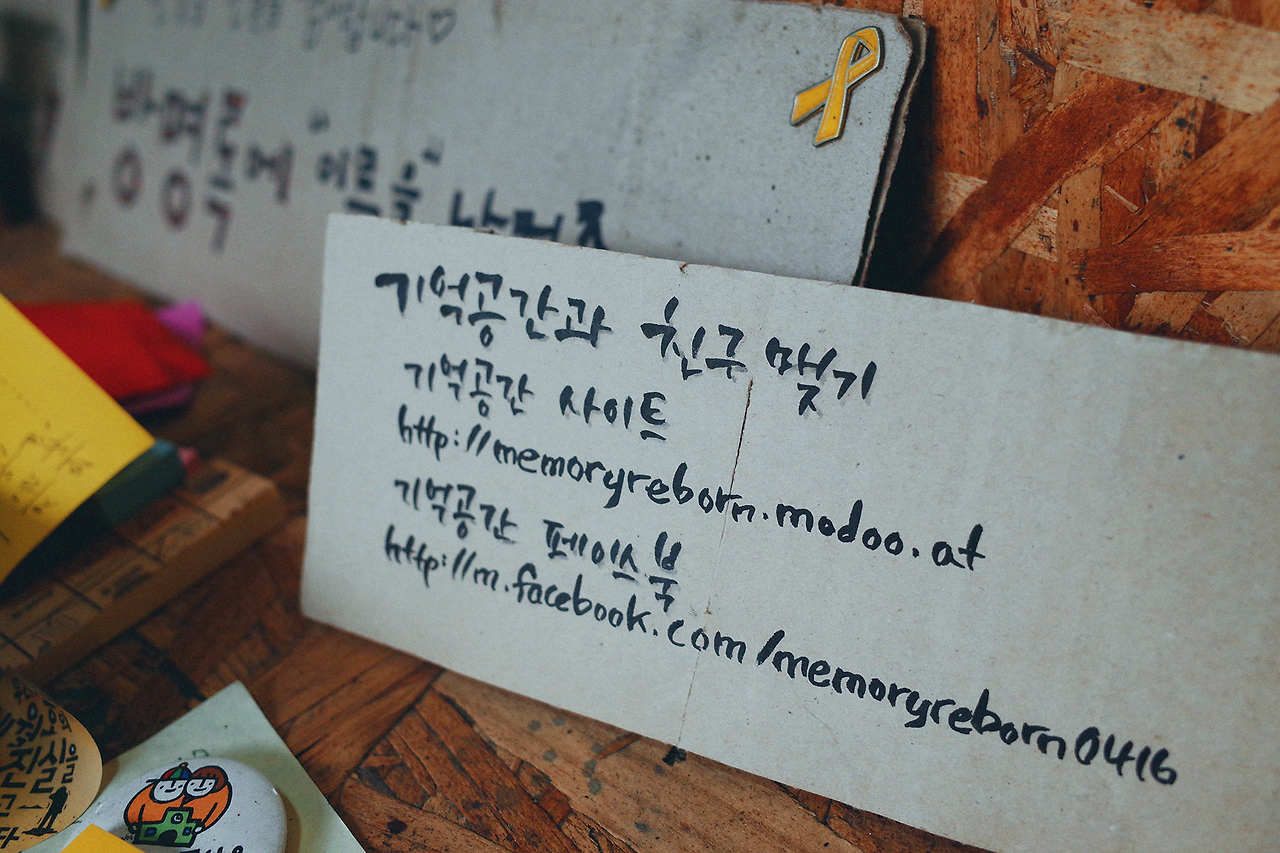 방명록에 "이름을"
기억공간과 친구 맺기
기억공간 사이트
http://memoryreborn.modoo.at
기억공간 페이스북
http://m.facebook.com/memoryreborn0416